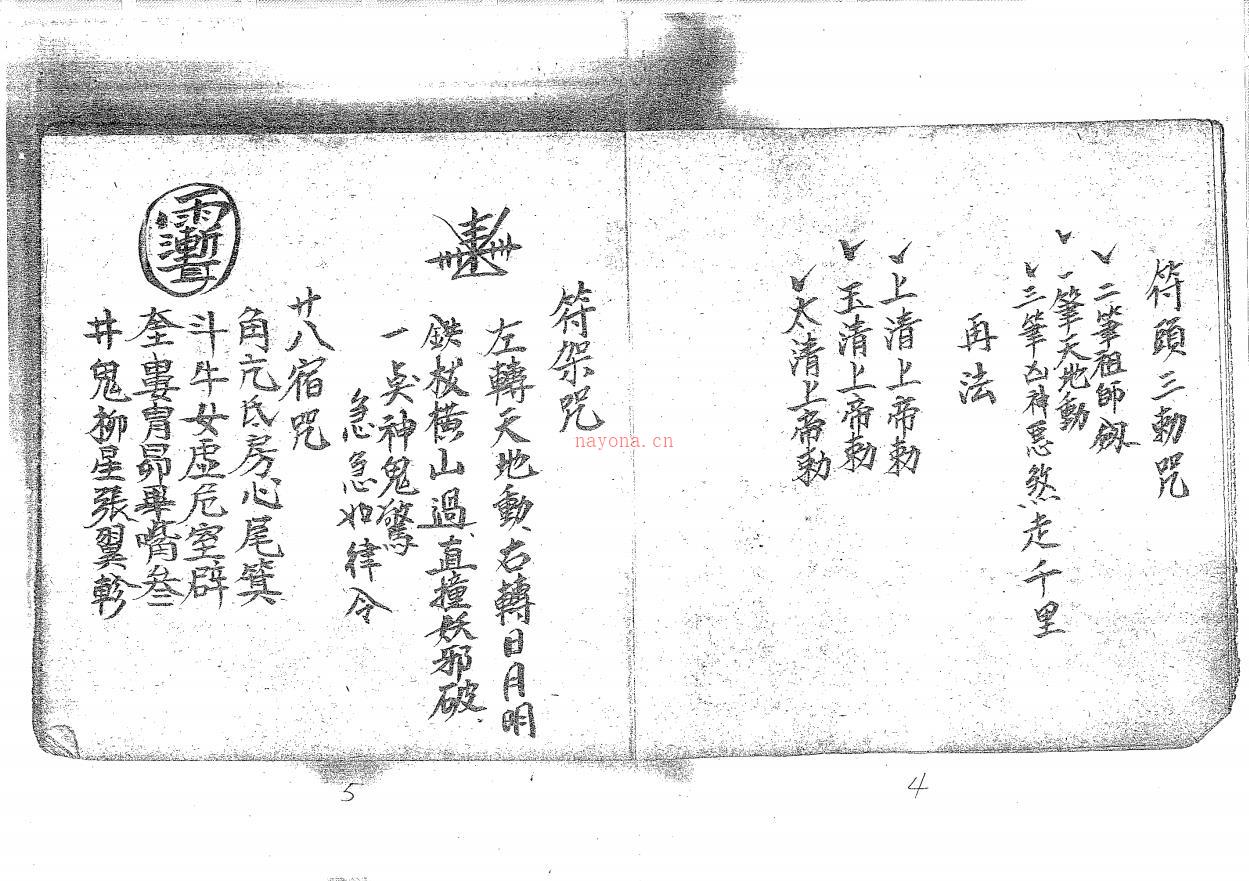 符頭三勅咒
二筆祖師劔
一筆天地動
三筆凶神惡煞走千里
再法
上清上帝勅
玉清上帝勅
太清上帝勅
4
符架咒
左轉天地動右轉日月明
鉄杖横山過直撞妖邪破
一奌神鬼驚
急急如律令
廿八宿咒
角亢氐房心尾箕
斗牛女虚危室辟
奎婁胃昴畢嘴叁
井鬼柳星張翼軫
5
nayona.cn